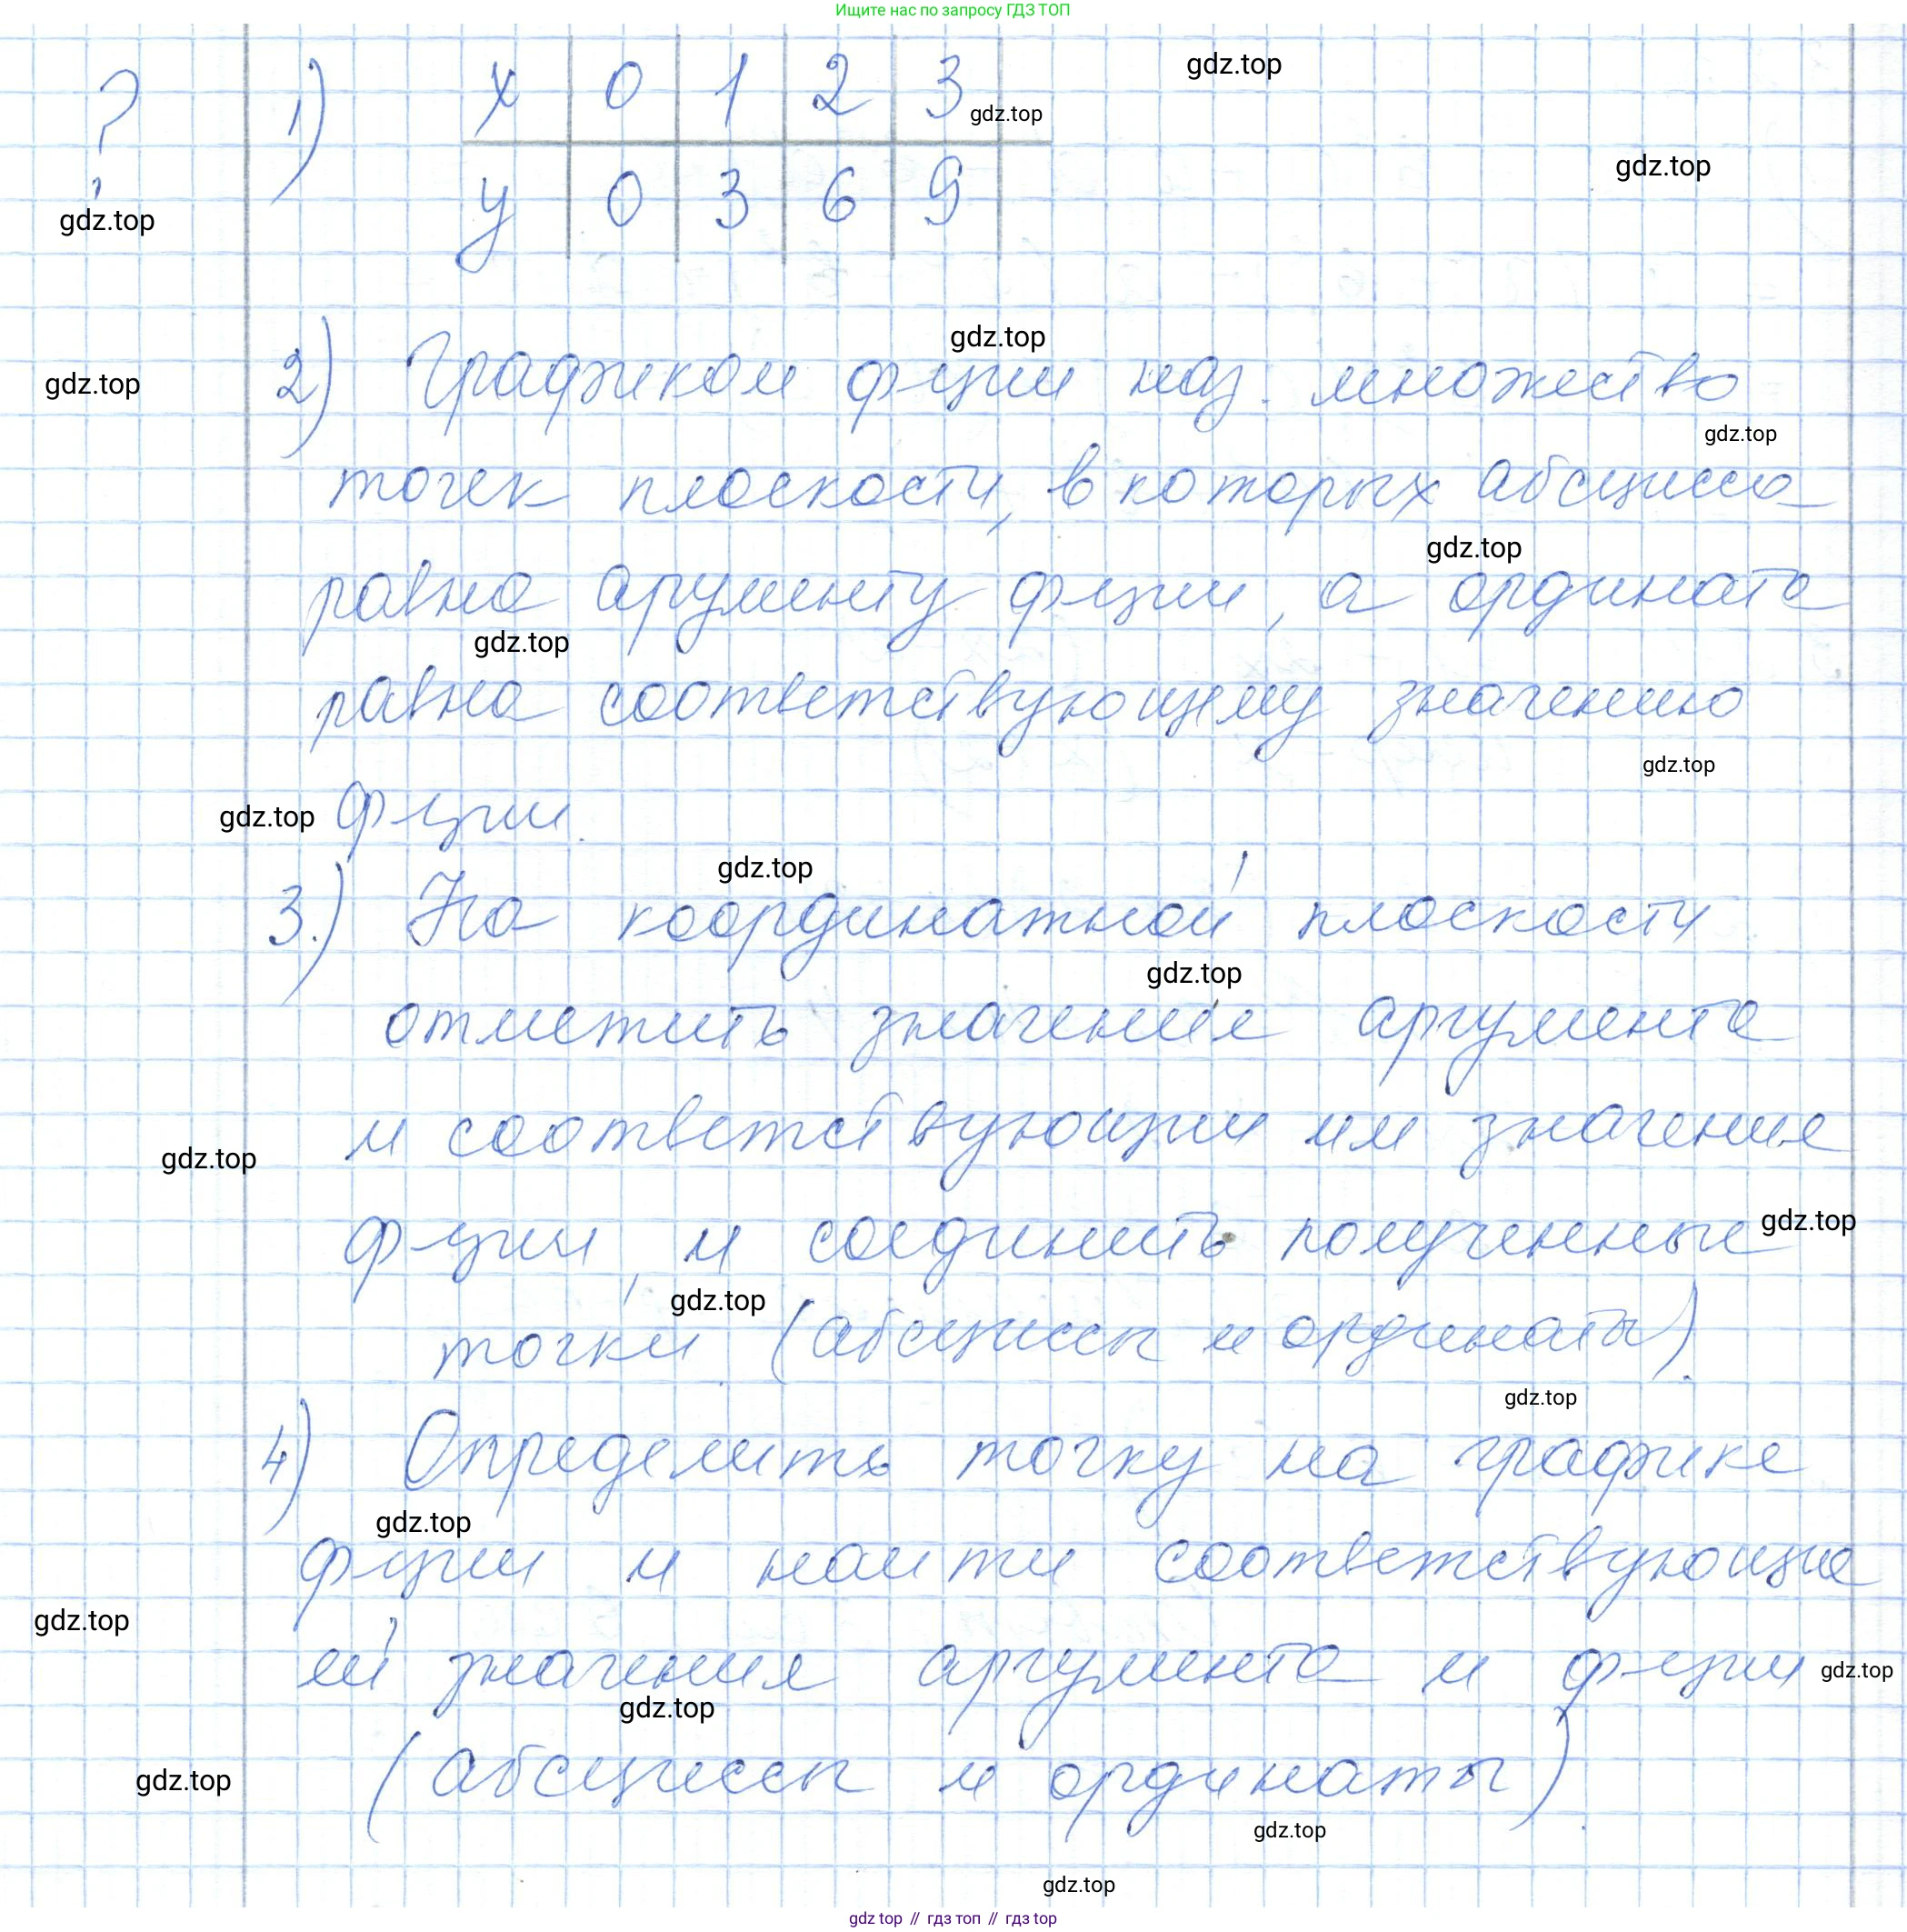 Ищите нас по запросу ГДЗ ТОП
? 1) x 0 1 2 3
gdz.top
gdz.top
gdz.top
y 0 3 6 9
gdz.top
gdz.top
2) Графиком ф-ции наз. множество
gdz.top
gdz.top
точек плоскости, в которых абсцисса
gdz.top
равна аргументу ф-ции, а ордината
gdz.top
равна соответствующему значению
gdz.top
gdz.top ф-ции.
gdz.top
3.) На координатной плоскости
gdz.top
отметить значение аргумента
и соответствующии им значение
gdz.top
ф-ции, и соединить полученные gdz.top
gdz.top
точки (абсциссы и ординаты).
gdz.top
4) Определить точку на графике
gdz.top
ф-ции и наити соответствующие
gdz.top
ей значения аргумента и ф-ции gdz.top
gdz.top
gdz.top (абсциссы и ординаты).
gdz.top
gdz.top
gdz top // гдз топ // гдз top